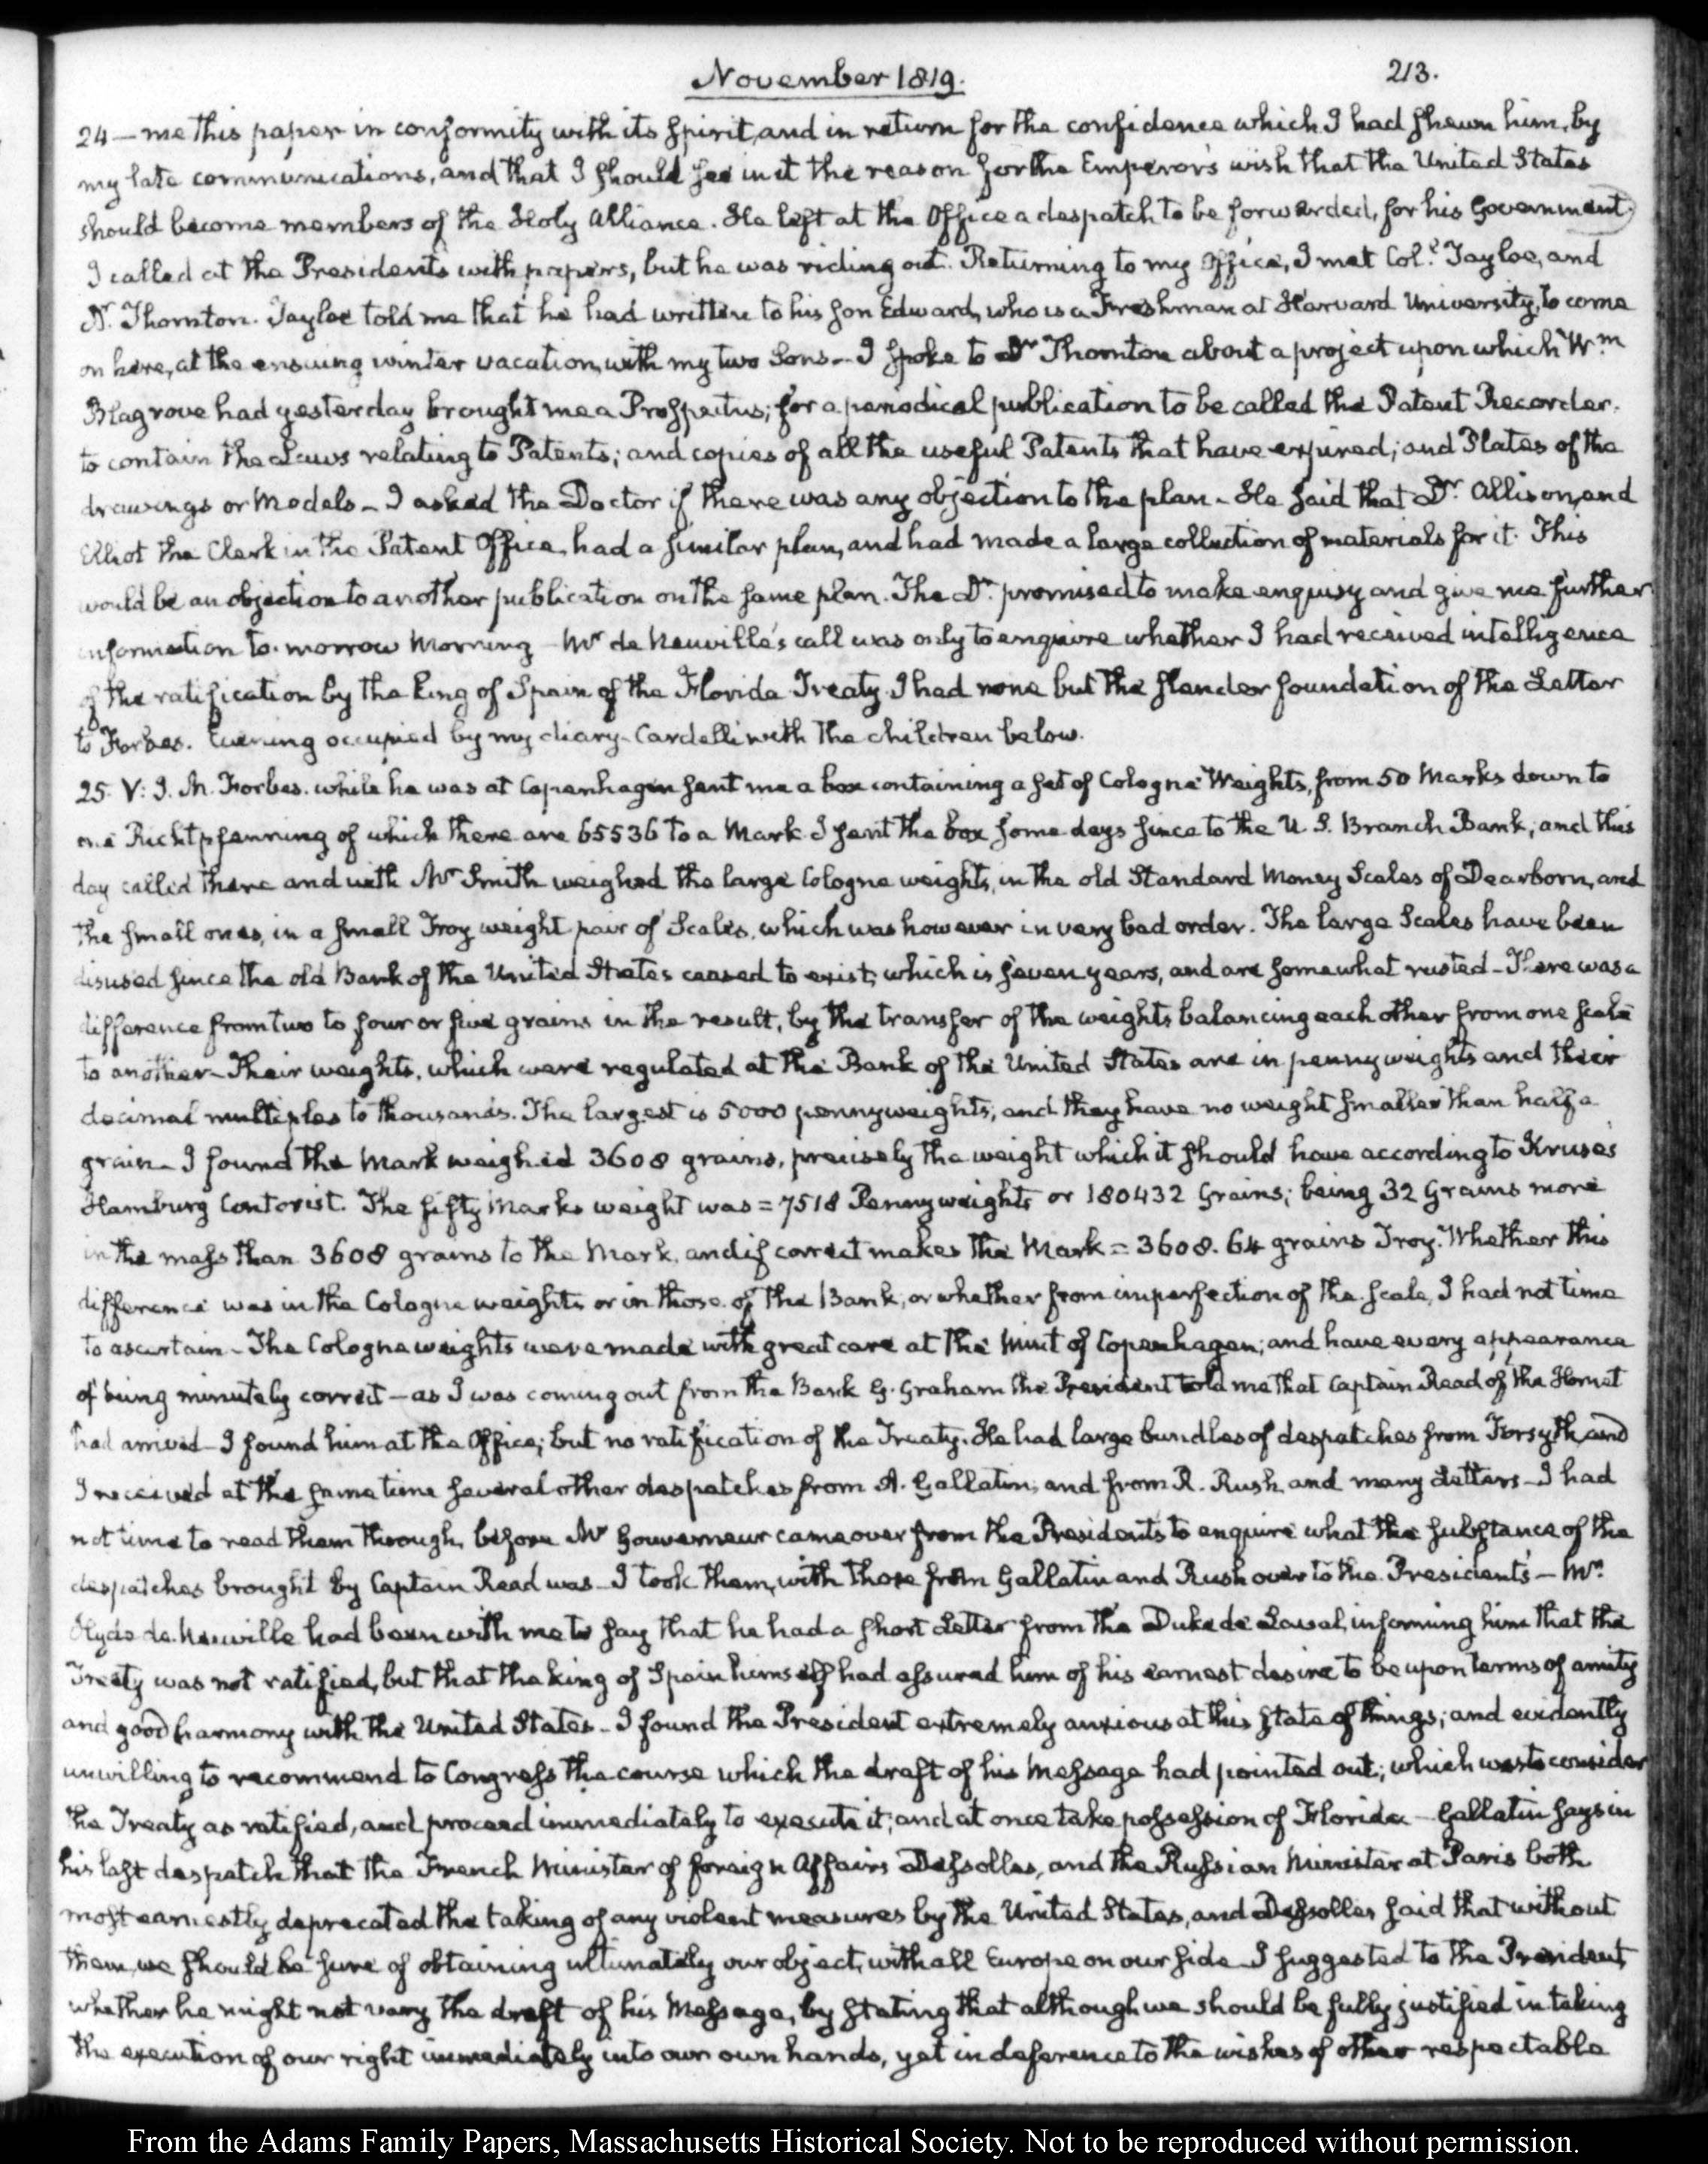 November 1819.
213.
24 — me this paper in conformity with its spirit, and in return for the confidence which I had shewn him, by
my late communications, and that I should see in it the reason for the Emperor's wish that the United States
should become members of the Holy Alliance. He left at the Office a despatch to be forwarded, for his Government.
I called at the President's with papers, but he was riding out. Returning to my Office, I met Col.l Tayloe, and
Dr. Thornton. Tayloe told me that he had written to his Son Edward, who is a Freshman at Harvard University, to come
on here, at the ensuing winter vacation, with my two Sons — I spoke to Dr Thornton about a project upon which Wm
Blagrove had yesterday brought me a Prospectus; for a periodical publication to be called the Patent Recorder.
to contain the Laws relating to Patents; and copies of all the useful Patents that have expired; and Plates of the
drawings or Models — I asked the Doctor if there was any objection to the plan — He said that Dr. Allison, and
Elliot the Clerk in the Patent Office, had a similar plan, and had made a large collection of materials for it. This
would be an objection to another publication on the same plan. The Dr. promised to make enquiry and give me further
information to-morrow Morning — Mr de Neuville's call was only to enquire whether I had received intelligence
of the ratification by the King of Spain of the Florida Treaty. I had none but the slender foundation of the Letter
to Forbes. Evening occupied by my diary — Cardelli with the children below.
25. V: J. M. Forbes. while he was at Copenhagen sent me a box containing a set of Cologne Weights, from 50 Marks down to
one Richtpfenning of which there are 65536 to a Mark. I sent the box some days since to the U. S. Branch Bank; and this
day called there and with Mr Smith weighed the large Cologne weights, in the old Standard Money Scales of Dearborn, and
the small ones, in a small Troy weight pair of Scales, which was however in very bad order. The large Scales have been
disused since the old Bank of the United States ceased to exist, which is seven years, and are somewhat rusted — There was a
difference from two to four or five grains in the result, by the transfer of the weights balancing each other from one scale
to another — Their weights, which were regulated at the Bank of the United States are in pennyweights and their
decimal multiples to thousands. The largest is 5000 pennyweights; and they have no weight smaller than half a
grain — I found the Mark weighed 3608 grains, precisely the weight which it should have according to Kruse's
Hamburg Contorist. The fifty Marks weight was = 7518 Pennyweights or 180432 Grains; being 32 Grains more
in the mass than 3608 grains to the Mark, and if correct makes the Mark = 3608.64 grains Troy. Whether this
difference was in the Cologne weights or in those of the Bank, or whether from imperfection of the scale, I had not time
to ascertain — The Cologne weights were made with great care at the Mint of Copenhagen; and have every appearance
of being minutely correct — as I was coming out from the Bank G. Graham the President told me that Captain Read of the Hornet
had arrived — I found him at the Office; but no ratification of the Treaty. He had large bundles of despatches from Forsyth, and
I received at the same time several other despatches from A. Gallatin, and from R. Rush, and many Letters — I had
not time to read them through, before Mr Gouverneur came over from the President's to enquire what the substance of the
despatches brought by Captain Read was — I took them, with those from Gallatin and Rush over to the President's — Mr.
Hyde de Neuville had been with me to say that he had a short Letter from the Duke de Laval, informing him that the
Treaty was not ratified, but that the king of Spain himself had assured him of his earnest desire to be upon terms of amity
and good harmony with the United States — I found the President extremely anxious at this state of things; and evidently
unwilling to recommend to Congress the course which the draft of his Message had pointed out; which was to consider
the Treaty as ratified, and proceed immediately to execute it; and at once take possession of Florida — Gallatin says in
his last despatch that the French Minister of foreign Affairs Dessolles, and the Russian Minister at Paris both
most earnestly deprecated the taking of any violent measures by the United States, and Dessolles said that without
them, we should be sure of obtaining ultimately our object, with all Europe on our side — I suggested to the President,
whether he might not vary the draft of his Message, by stating that although we should be fully justified in taking
the execution of our right immediately into our own hands, yet in deference to the wishes of other respectable
From the Adams Family Papers, Massachusetts Historical Society. Not to be reproduced without permission.